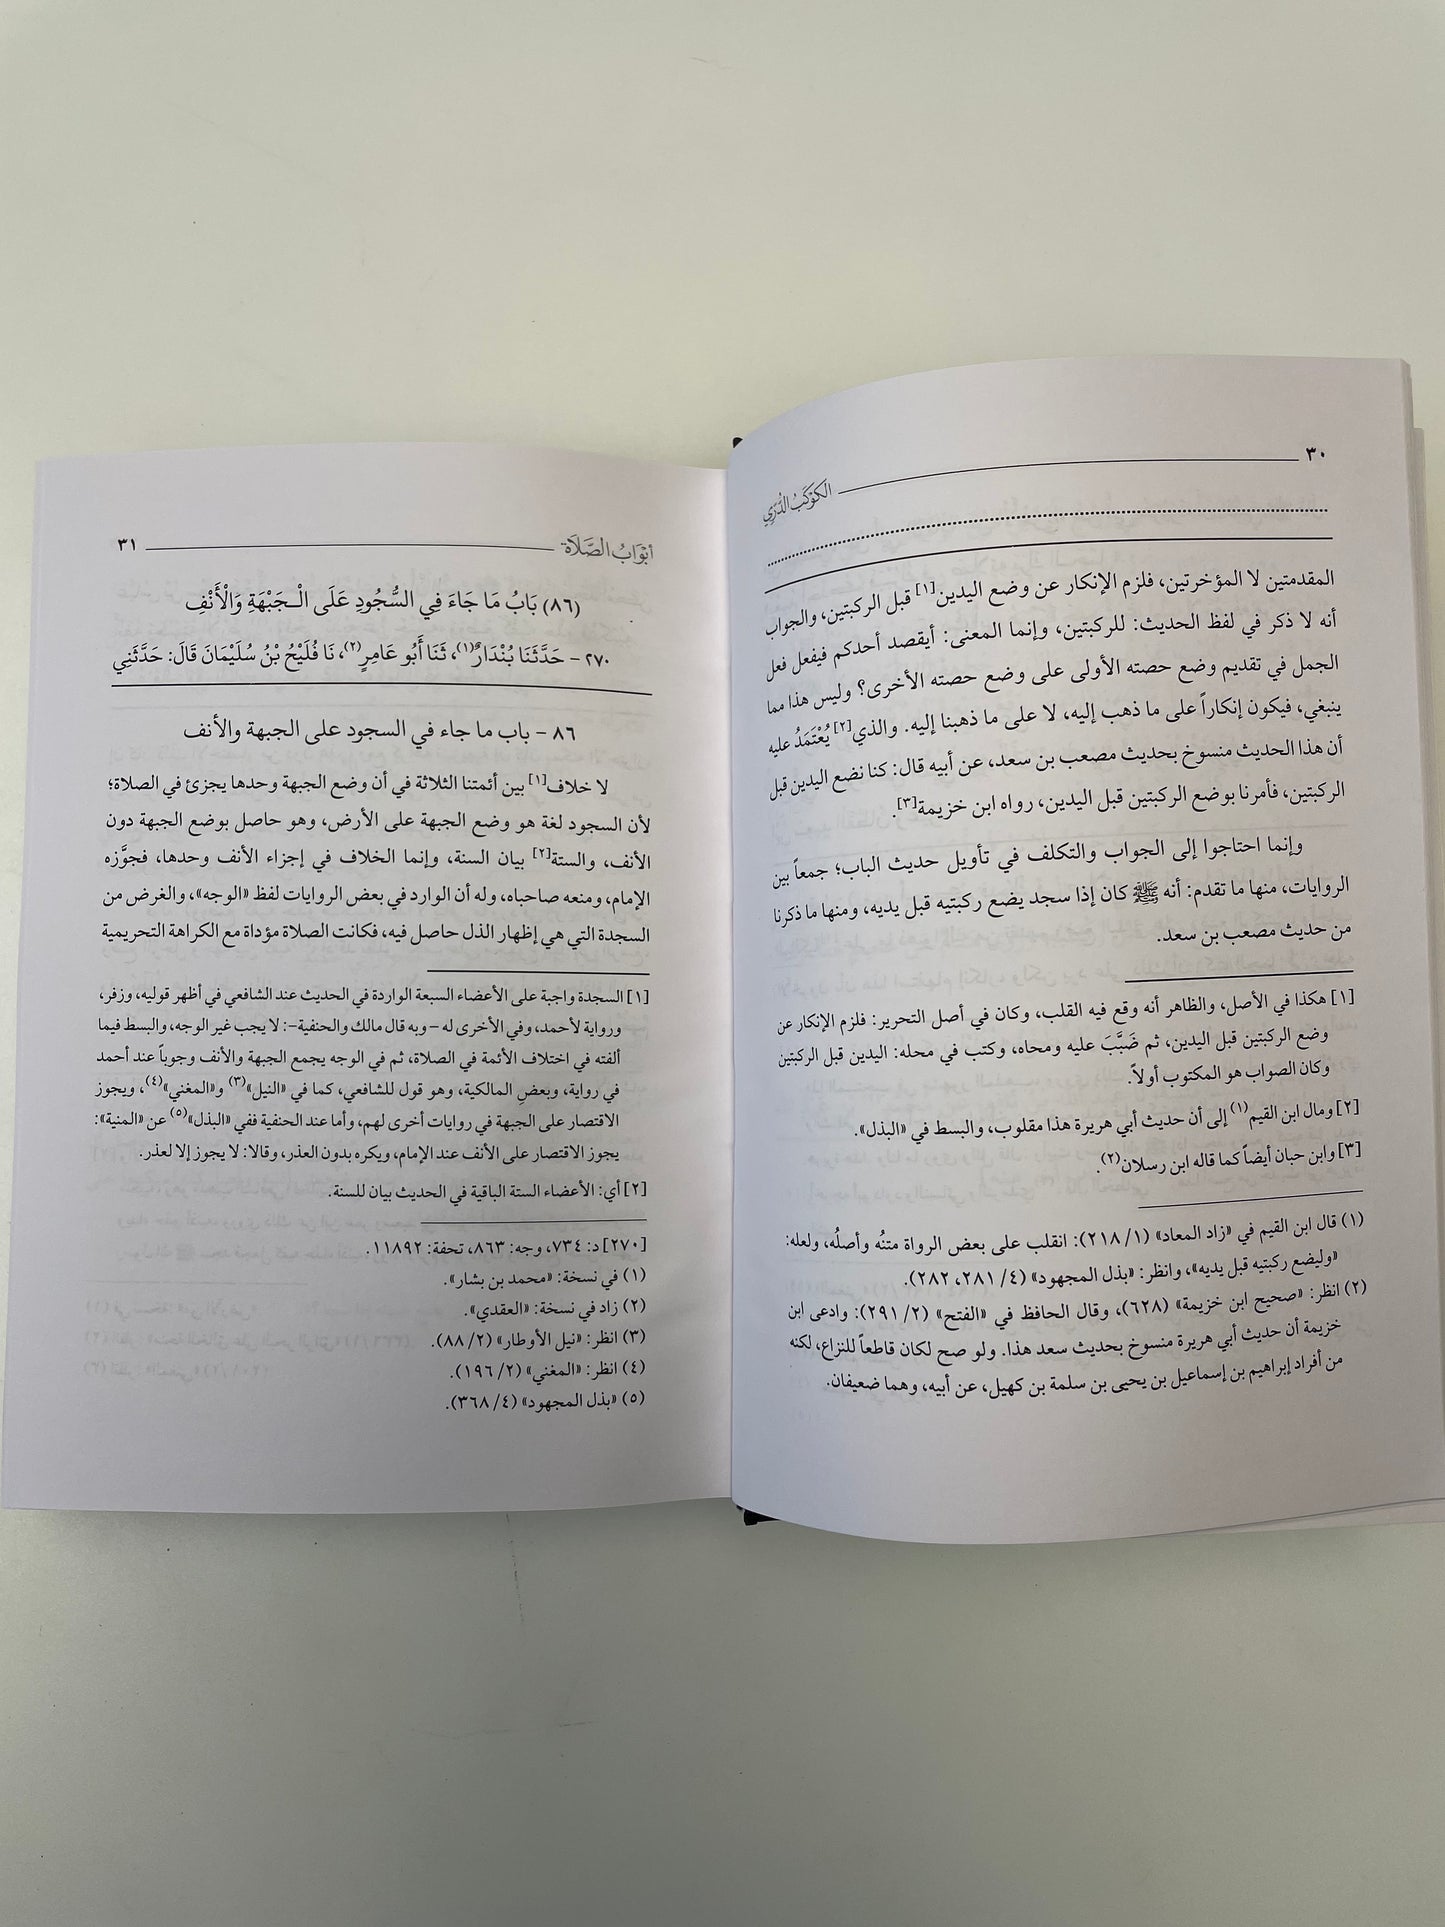 ٣٠
الكَوْكَبُ الدُّرِّي
المقدمتين لا المؤخرتين، فلزم الإنكار عن وضع اليدين[١] قبل الركبتين، والجواب
أنه لا ذكر في لفظ الحديث: للركبتين، وإنما المعنى: أيقصد أحدكم فيفعل فعل
الجمل في تقديم وضع حصته الأولى على وضع حصته الأخرى؟ وليس هذا مما
ينبغي، فيكون إنكاراً على ما ذهب إليه، لا على ما ذهبنا إليه. والذي[٢] يُعْتَمَدُ عليه
أن هذا الحديث منسوخ بحديث مصعب بن سعد، عن أبيه قال: كنا نضع اليدين قبل
الركبتين، فأمرنا بوضع الركبتين قبل اليدين، رواه ابن خزيمة[٣].
وإنما احتاجوا إلى الجواب والتكلف في تأويل حديث الباب؛ جمعاً بين
الروايات، منها ما تقدم: أنه ﷺ كان إذا سجد يضع ركبتيه قبل يديه، ومنها ما ذكرنا
من حديث مصعب بن سعد.
[١] هكذا في الأصل، والظاهر أنه وقع فيه القلب، وكان في أصل التحرير: فلزم الإنكار عن
وضع الركبتين قبل اليدين، ثم ضَبَّبَ عليه ومحاه، وكتب في محله: اليدين قبل الركبتين
وكان الصواب هو المكتوب أولاً.
[٢] ومال ابن القيم(١) إلى أن حديث أبي هريرة هذا مقلوب، والبسط في «البذل».
[٣] وابن حبان أيضاً كما قاله ابن رسلان(٢).
(١) قال ابن القيم في «زاد المعاد» (١/ ٢١٨): انقلب على بعض الرواة متنُه وأصلُه، ولعله:
«وليضع ركبتيه قبل يديه»، وانظر: «بذل المجهود» (٤/ ٢٨١، ٢٨٢).
(٢) انظر: «صحيح ابن خزيمة» (٦٢٨)، وقال الحافظ في «الفتح» (٢/ ٢٩١): وادعى ابن
خزيمة أن حديث أبي هريرة منسوخ بحديث سعد هذا. ولو صح لكان قاطعاً للنزاع، لكنه
من أفراد إبراهيم بن إسماعيل بن يحيى بن سلمة بن كهيل، عن أبيه، وهما ضعيفان.
أبْوَابُ الصَّلَاة
٣١
(٨٦) بَابُ مَا جَاءَ فِي السُّجُودِ عَلَى الْـجَبْهَةِ وَالْأَنْفِ
٢٧٠ - حَدَّثَنَا بُنْدَارٌ(١)، ثَنَا أَبُو عَامِرٍ(٢)، نَا فُلَيْحُ بْنُ سُلَيْمَانَ قَالَ: حَدَّثَنِي
٨٦ - باب ما جاء في السجود على الجبهة والأنف
لا خلاف[١] بين أئمتنا الثلاثة في أن وضع الجبهة وحدها يجزئ في الصلاة؛
لأن السجود لغة هو وضع الجبهة على الأرض، وهو حاصل بوضع الجبهة دون
الأنف، والستة[٢] بيان السنة، وإنما الخلاف في إجزاء الأنف وحدها، فجوَّزه
الإمام، ومنعه صاحباه، وله أن الوارد في بعض الروايات لفظ «الوجه»، والغرض من
السجدة التي هي إظهار الذل حاصل فيه، فكانت الصلاة مؤداة مع الكراهة التحريمية
[١] السجدة واجبة على الأعضاء السبعة الواردة في الحديث عند الشافعي في أظهر قوليه، وزفر،
ورواية لأحمد، وفي الأخرى له -وبه قال مالك والحنفية-: لا يجب غير الوجه، والبسط فيما
ألفته في اختلاف الأئمة في الصلاة، ثم في الوجه يجمع الجبهة والأنف وجوباً عند أحمد
في رواية، وبعضِ المالكية، وهو قول للشافعي، كما في «النيل»(٣) و«المغني»(٤)، ويجوز
الاقتصار على الجبهة في روايات أخرى لهم، وأما عند الحنفية ففي «البذل»(٥) عن «المنية»:
يجوز الاقتصار على الأنف عند الإمام، ويكره بدون العذر، وقالا: لا يجوز إلا لعذر.
[٢] أي: الأعضاء الستة الباقية في الحديث بيان للسنة.
[٢٧٠] د: ٧٣٤، وجه: ٨٦٣، تحفة: ١١٨٩٢.
(١) في نسخة: «محمد بن بشار».
(٢) زاد في نسخة: «العقدي».
(٣) انظر: «نيل الأوطار» (٢/ ٨٨).
(٤) انظر: «المغني» (٢/ ١٩٦).
(٥) «بذل المجهود» (٤/ ٣٦٨).